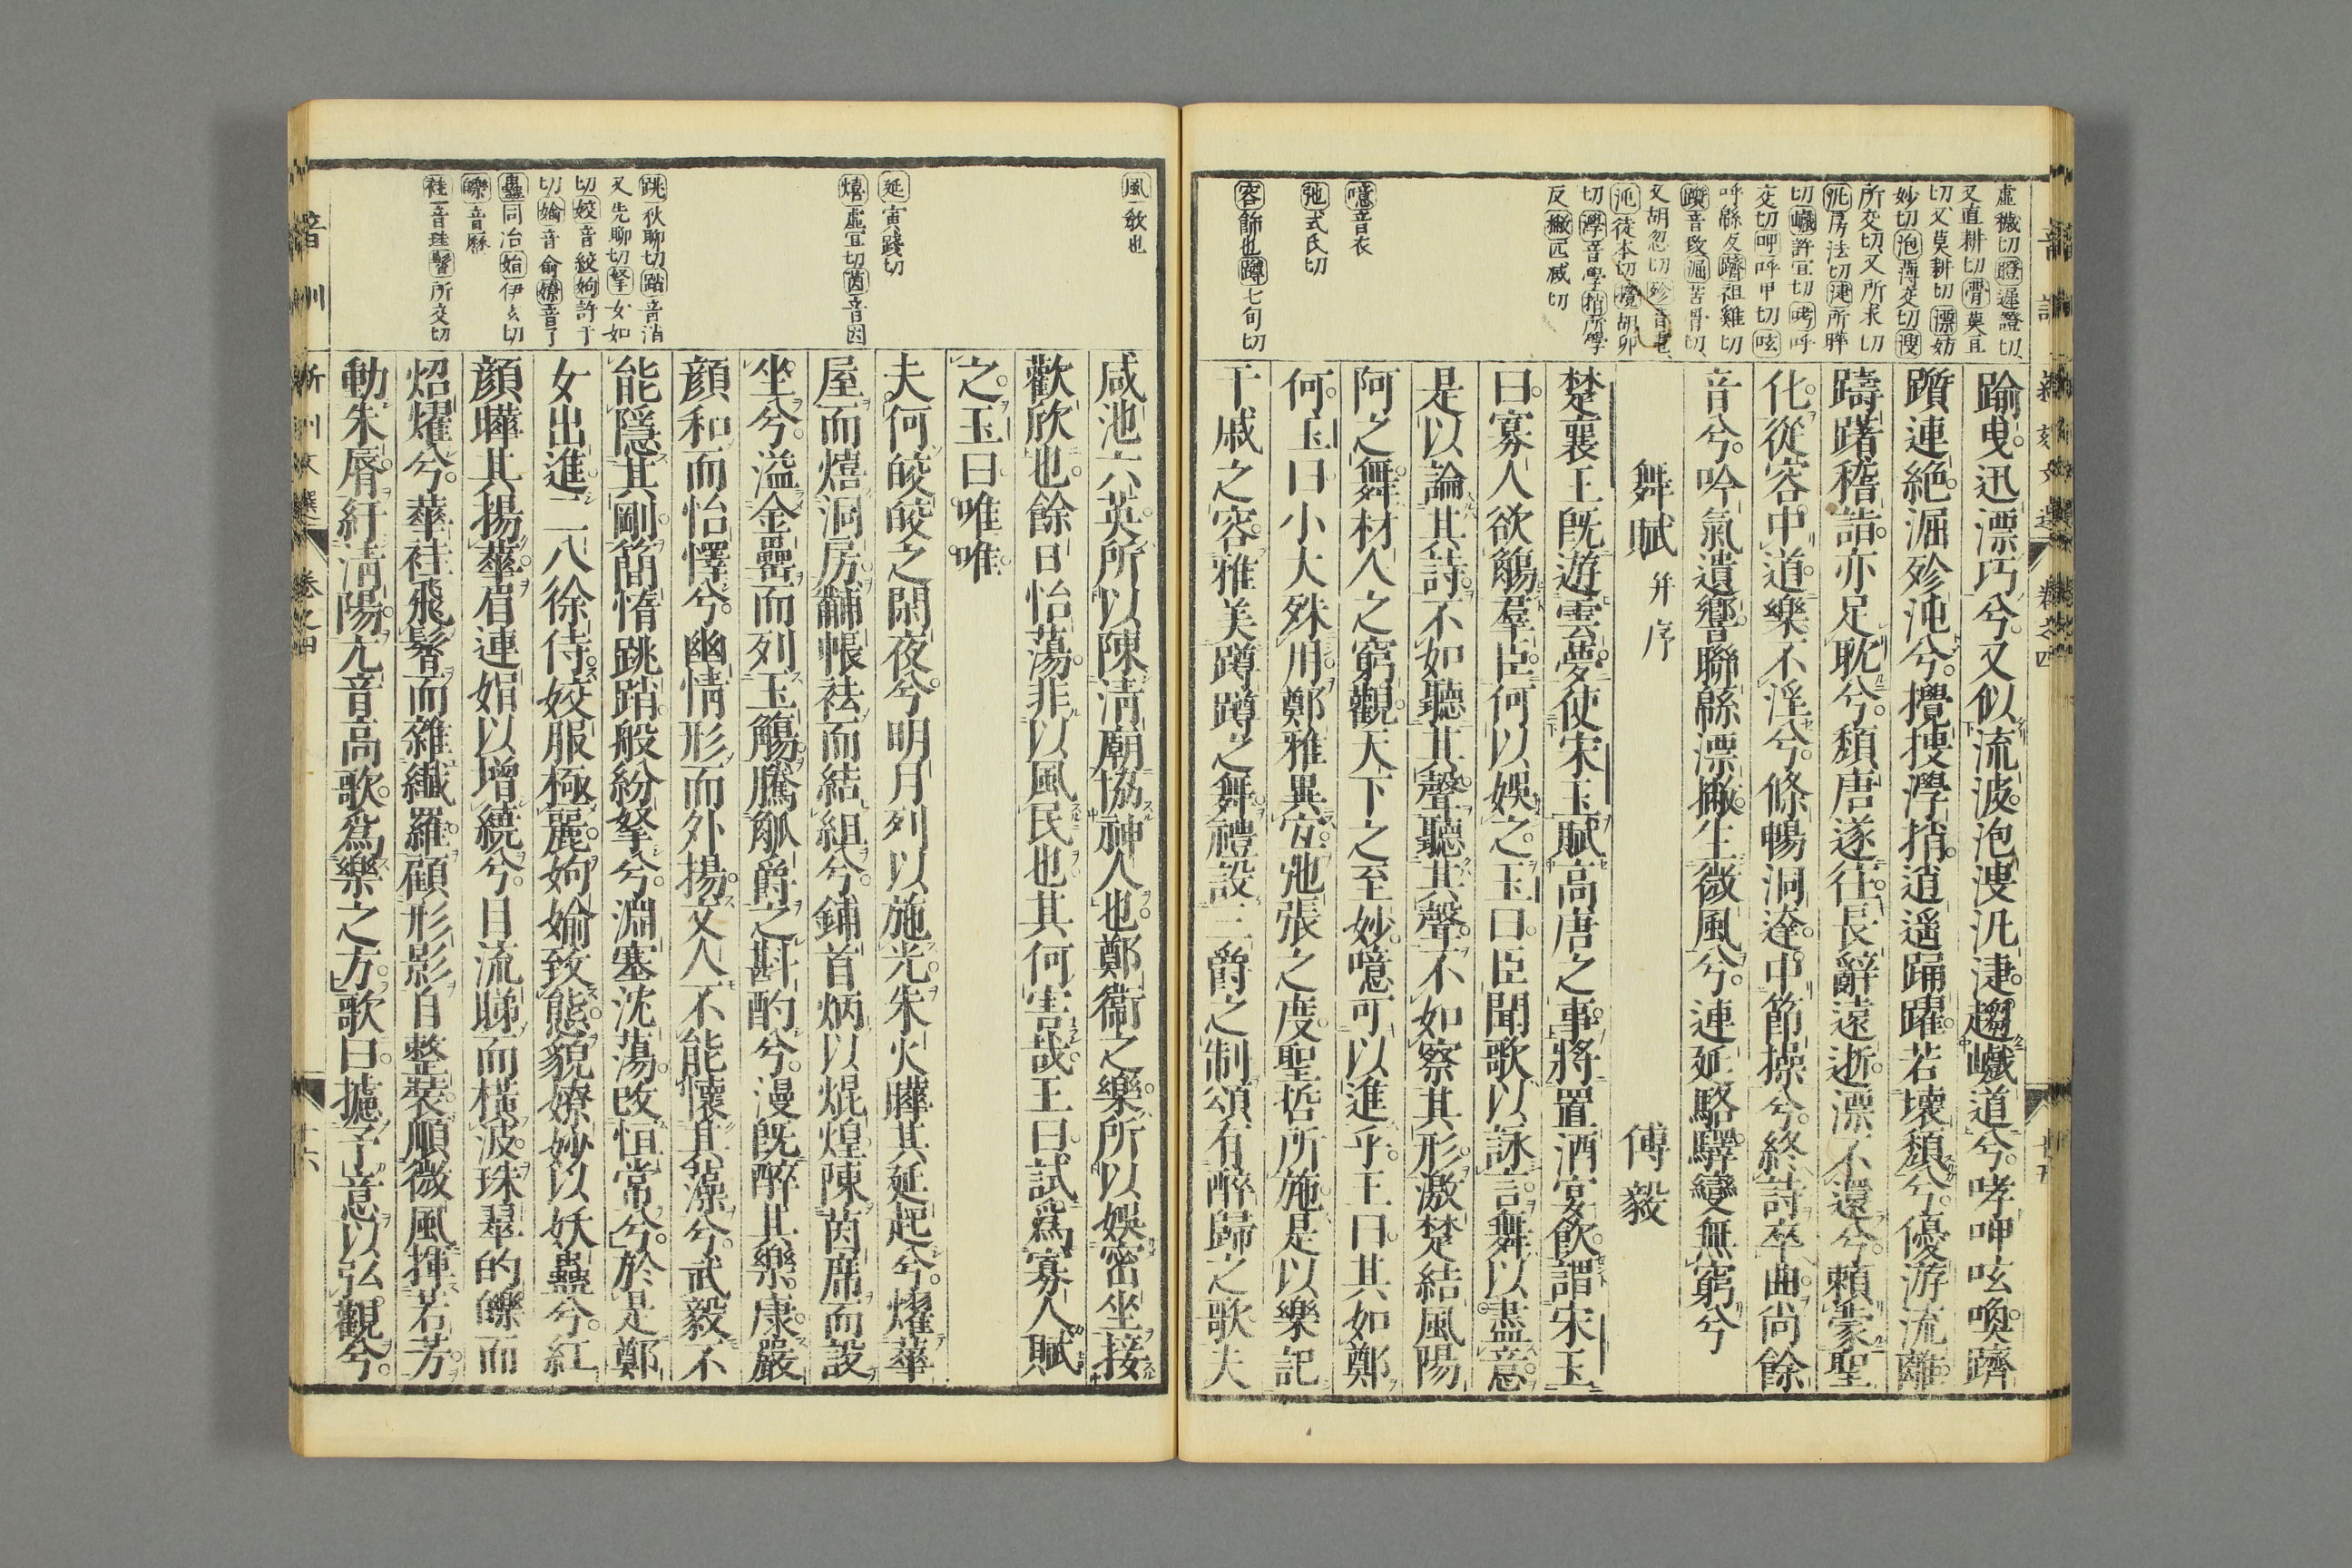 虚穢切 瞪 遲證切
又直耕切 㬱 莫亘
切又莫耕切 漂 妨
妙切 泡 薄交切 溲
所交切又所求切
汎 房法切 㨗 所臂
切 巇 許宜切 哮 呼
交切 呷 呼甲切 呟
呼緜反 躋 祖雞切
躓 音致 淈 苦骨切
又胡忽切
沌 徒本切 攪 胡卯
切 澩 音學 捎 所學
反 撇 匹滅切
噫 音衣
弛 式氏切
容 飾也 蹲 七旬切
踰曳迅漂巧兮又似流波泡溲汎㨗趨巇道兮哮呷呟喚躋
躓連絕淈殄沌兮攪搜澩捎逍遥踊躍若壞頹兮優游流離
躊躇稽詣亦足耽兮頹唐遂往長辭遠逝漂不還兮賴蒙聖
化從容中道樂不淫兮條暢洞達中節操兮終詩卒曲尚餘
音兮吟氣遺響聯緜漂撇生微風兮連延駱驛變無窮兮
舞賦 幷序 傅毅
楚襄王既遊雲夢使宋玉賦高唐之事將置酒宴飲謂宋玉
曰寡人欲觴羣臣何以娛之玉曰臣聞歌以詠言舞以盡意
是以論其詩不如聽其聲聽其聲不如察其形激楚結風陽
阿之舞材人之窮觀天下之至妙噫可以進乎王曰其如鄭
何玉曰小大殊用鄭雅異宜弛張之度聖哲所施是以樂記
干戚之容雅美蹲蹲之舞禮設三爵之制頌有醉歸之歌夫
風 敎也
延 寅踐切
熺 虚宜切 茵 音因
跳 狄聊切 踃 音消
又先聊切 拏 女如
切 姣 音絞 姁 許于
切 媮 音俞 嫽 音了
蠱 同冶 妶 伊幺切
皪 音歷
袿 音珪 髾 所交切
咸池六英所以陳淸廟協神人也鄭衞之樂所以娛密坐接
歡欣也餘日怡蕩非以風民也其何害哉王曰試爲寡人賦
之玉曰唯唯
夫何皎皎之閑夜兮明月列以施光朱火曄其延起兮燿華
屋而熺洞房黼帳袪而結組兮鋪首炳以焜煌陳茵席而設
坐兮溢金罍而列玉觴騰觚爵之斟酌兮漫既醉其樂康嚴
顔和而怡懌兮幽情形而外揚文人不能懷其藻兮武毅不
能隱其剛簡惰跳踃般紛拏兮淵塞沈蕩改恒常兮於是鄭
女出進二八徐侍姣服極麗姁媮致態貌嫽妙以妖蠱兮紅
顔曄其揚華眉連娟以增繞兮目流睇而橫波珠翠的皪而
炤燿兮華袿飛髾而雜纖羅顧形影自整裝順微風揮若芳
動朱脣紆淸陽亢音高歌爲樂之方歌曰攄予意以弘觀兮